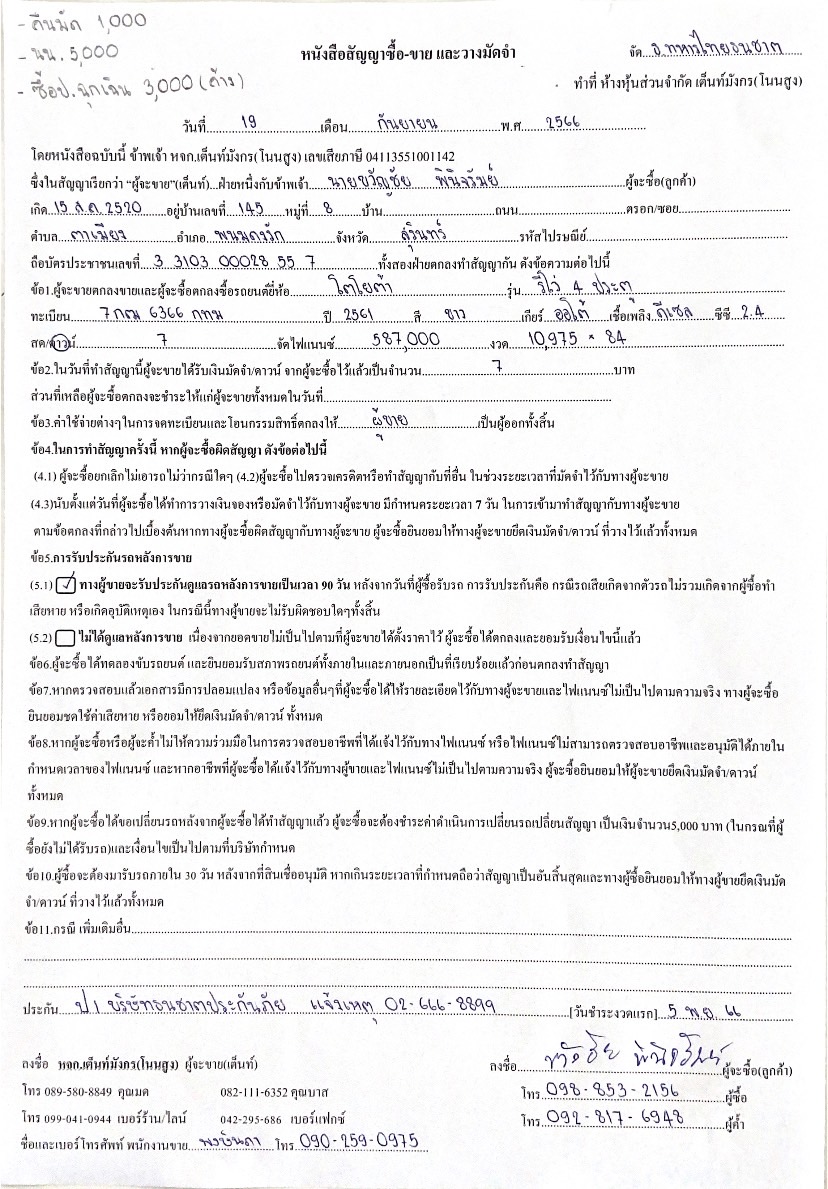 - คืนมัด 1,000
- นน. 5,000
- ซื้อป.ฉุกเฉิน 3,000 (ค้าง)
หนังสือสัญญาซื้อ-ขาย และวางมัดจำ
จัด ธ.ทหารไทยธนชาต
ทำที่ ห้างหุ้นส่วนจำกัด เต็นท์มังกร(โนนสูง)
วันที่ 19 เดือน กันยายน พ.ศ 2566
โดยหนังสือฉบับนี้ ข้าพเจ้า หจก.เต็นท์มังกร(โนนสูง) เลขเสียภาษี 04113551001142
ซึ่งในสัญญาเรียกว่า "ผู้จะขาย"(เต็นท์)...ฝ่ายหนึ่งกับข้าพเจ้า นายขวัญชัย พินิจรัมย์ ผู้จะซื้อ(ลูกค้า)
เกิด 15 ส.ค. 2520 อยู่บ้านเลขที่ 145 หมู่ที่ 8 บ้าน ถนน ตรอก/ซอย
ตำบล ตาเมียง อำเภอ พนมดงรัก จังหวัด สุรินทร์ รหัสไปรษณีย์
ถือบัตรประชาชนเลขที่ 3 3103 00028 55 7 ทั้งสองฝ่ายตกลงทำสัญญากัน ดังข้อความต่อไปนี้
ข้อ1.ผู้จะขายตกลงขายและผู้จะซื้อตกลงซื้อรถยนต์ยี่ห้อ โตโยต้า รุ่น รีโว่ 4 ประตู
ทะเบียน 7กฒ 6366 กทม ปี 2561 สี ขาว เกียร์ ออโต้ เชื้อเพลิง ดีเซล ซีซี 2.4
สด/ดาวน์ 7 จัดไฟแนนซ์ 587,000 งวด 10,975 × 84
ข้อ2.ในวันที่ทำสัญญานี้ผู้จะขายได้รับเงินมัดจำ/ดาวน์ จากผู้จะซื้อไว้แล้วเป็นจำนวน 7 บาท
ส่วนที่เหลือผู้จะซื้อตกลงจะชำระให้แก่ผู้จะขายทั้งหมดในวันที่
ข้อ3.ค่าใช้จ่ายต่างๆในการจดทะเบียนและโอนกรรมสิทธิ์ตกลงให้ ผู้ขาย เป็นผู้ออกทั้งสิ้น
ข้อ4.ในการทำสัญญาครั้งนี้ หากผู้จะซื้อผิดสัญญา ดังข้อต่อไปนี้
(4.1) ผู้จะซื้อยกเลิกไม่เอารถไม่ว่ากรณีใดๆ (4.2)ผู้จะซื้อไปตรวจเครดิตหรือทำสัญญากับที่อื่น ในช่วงระยะเวลาที่มัดจำไว้กับทางผู้จะขาย
(4.3)นับตั้งแต่วันที่ผู้จะซื้อได้ทำการวางเงินจองหรือมัดจำไว้กับทางผู้จะขาย มีกำหนดระยะเวลา 7 วัน ในการเข้ามาทำสัญญากับทางผู้จะขาย
ตามข้อตกลงที่กล่าวไปเบื้องต้นหากทางผู้จะซื้อผิดสัญญากับทางผู้จะขาย ผู้จะซื้อยินยอมให้ทางผู้จะขายยึดเงินมัดจำ/ดาวน์ ที่วางไว้แล้วทั้งหมด
ข้อ5.การรับประกันรถหลังการขาย
(5.1) ✓ ทางผู้ขายจะรับประกันดูแลรถหลังการขายเป็นเวลา 90 วัน หลังจากวันที่ผู้ซื้อรับรถ การรับประกันคือ กรณีรถเสียเกิดจากตัวรถไม่รวมเกิดจากผู้ซื้อทำ
เสียหาย หรือเกิดอุบัติเหตุเอง ในกรณีนี้ทางผู้ขายจะไม่รับผิดชอบใดๆทั้งสิ้น
(5.2) ไม่ได้ดูแลหลังการขาย เนื่องจากยอดขายไม่เป็นไปตามที่ผู้จะขายได้ตั้งราคาไว้ ผู้จะซื้อได้ตกลงและยอมรับเงื่อนไขนี้แล้ว
ข้อ6.ผู้จะซื้อได้ทดลองขับรถยนต์ และยินยอมรับสภาพรถยนต์ทั้งภายในและภายนอกเป็นที่เรียบร้อยแล้วก่อนตกลงทำสัญญา
ข้อ7.หากตรวจสอบแล้วเอกสารมีการปลอมแปลง หรือข้อมูลอื่นๆที่ผู้จะซื้อได้ให้รายละเอียดไว้กับทางผู้จะขายและไฟแนนซ์ไม่เป็นไปตามความจริง ทางผู้จะซื้อ
ยินยอมชดใช้ค่าเสียหาย หรือยอมให้ยึดเงินมัดจำ/ดาวน์ ทั้งหมด
ข้อ8.หากผู้จะซื้อหรือผู้จะค้ำไม่ให้ความร่วมมือในการตรวจสอบอาชีพที่ได้แจ้งไว้กับทางไฟแนนซ์ หรือไฟแนนซ์ไม่สามารถตรวจสอบอาชีพและอนุมัติได้ภายใน
กำหนดเวลาของไฟแนนซ์ และหากอาชีพที่ผู้จะซื้อได้แจ้งไว้กับทางผู้ขายและไฟแนนซ์ไม่เป็นไปตามความจริง ผู้จะซื้อยินยอมให้ผู้จะขายยึดเงินมัดจำ/ดาวน์
ทั้งหมด
ข้อ9.หากผู้จะซื้อได้ขอเปลี่ยนรถหลังจากผู้จะซื้อได้ทำสัญญาแล้ว ผู้จะซื้อจะต้องชำระค่าดำเนินการเปลี่ยนรถเปลี่ยนสัญญา เป็นเงินจำนวน5,000 บาท (ในกรณที่ผู้
ซื้อยังไม่ได้รับรถ)และเงื่อนไขเป็นไปตามที่บริษัทกำหนด
ข้อ10.ผู้ซื้อจะต้องมารับรถภายใน 30 วัน หลังจากที่สินเชื่ออนุมัติ หากเกินระยะเวลาที่กำหนดถือว่าสัญญาเป็นอันสิ้นสุดและทางผู้ซื้อยินยอมให้ทางผู้ขายยึดเงินมัด
จำ/ดาวน์ ที่วางไว้แล้วทั้งหมด
ข้อ11.กรณี เพิ่มเติมอื่น
ประกัน ป.1 บริษัทธนชาตประกันภัย แจ้งเหตุ 02-666-8899 [วันชำระงวดแรก] 5 พ.ย. 66
ลงชื่อ หจก.เต็นท์มังกร(โนนสูง) ผู้จะขาย(เต็นท์)
ลงชื่อ ขวัญชัย พินิจรัมย์ ผู้จะซื้อ(ลูกค้า)
โทร 089-580-8849 คุณมด 082-111-6352 คุณบาส
โทร 098-853-2156 ผู้ซื้อ
โทร 099-041-0944 เบอร์ร้าน/ไลน์ 042-295-686 เบอร์แฟกซ์
โทร 092-817-6948 ผู้ค้ำ
ชื่อและเบอร์โทรศัพท์ พนักงานขาย โทร 090-259-0975